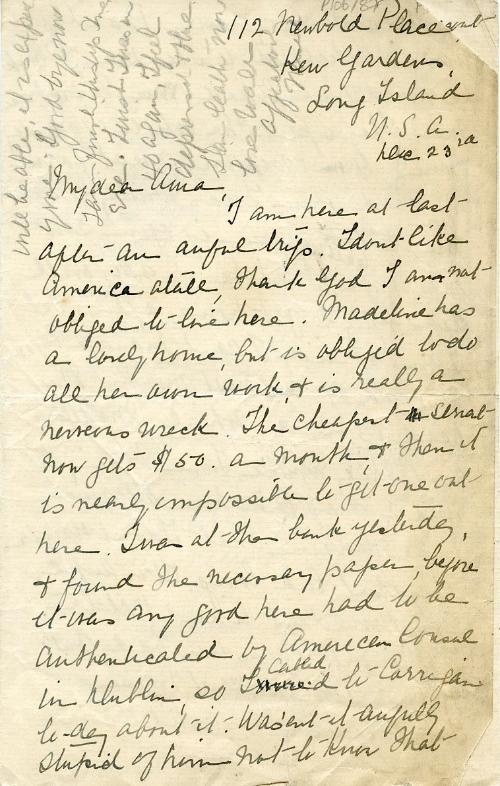 112 Newbold Place
Kew Gardens,
Long Island
U.S.A.
Dec 23rd
My dear Ama,
I am here at last
after an awful trip. I dont like
America atall, thank God I am not
obliged to live here. Madeline has
a lovely home, but is obliged to do
all her own work, & is really a
nerveous wreck. The cheapest servant
now gets $50. a month, & then it
is nearly impossible to get one out
here. I was at the bank yesterday,
& found the necessary paper, before
it was any good here had to be
authenticated by American Consul
in Dublin, so I cabled to Carrigan
to-day about it. Wasent it awfully
stupid of him not to know that